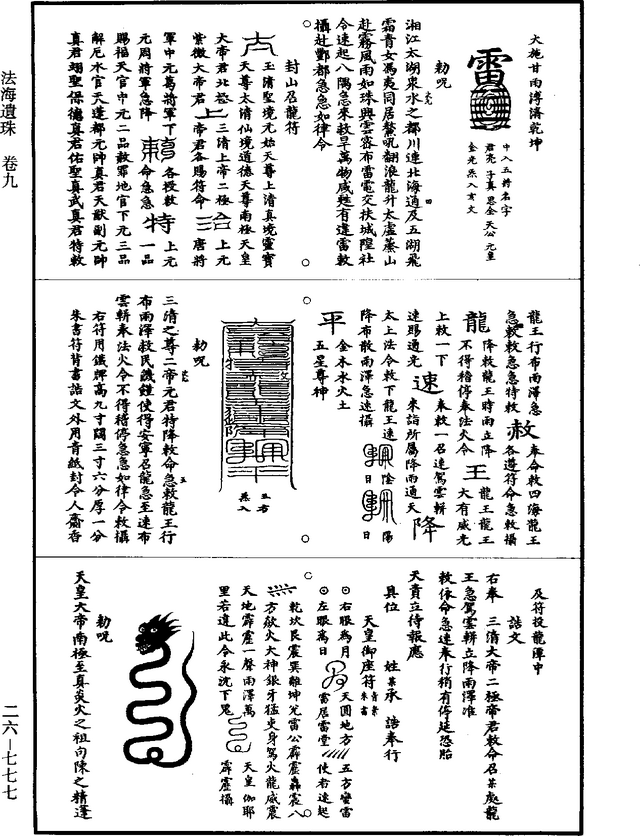 大施甘雨溥濟乾坤
中入五將名字
君亮 子真 思全 天公 元皇
金光炁入亥文
勑呪
湘江太湖泉水之都川連北海通及五湖飛
霜青女馮夷同居鰲吼翻浪龍升太虛蓁山
赴霧風雨如珠興雲密布雷電交扶城隍社
令速起八隅急來救旱萬物咸甦有違雷敕
攝赴酆都急急如律令
封山召龍符
玉清聖境元始天尊上清真境靈寶
天尊太清仙境道德天尊南極天皇
大帝君北極
三清上帝二極
上元
紫微大帝君
上帝君各賜符命
唐將
軍中元葛將軍下
各授敕
上元
元周將軍急降
命急急
特
一品
賜福天官中元二品赦罪地官下元三品
解厄水官天蓬都元帥真君天猷副元帥
真君翊聖保德真君佑聖真武真君特敕
龍王行布雨澤急
急敕敕急急特敕
赦
奉命敕四海龍王
各遵符命急敕攝
龍
降敕龍王時雨立降
不得稽停奉法火令
王
龍王龍王
大有威光
上敕一下
速賜通光
速
奉敕一召速駕雲軿
來詣所屬降雨通天
降
太上法令敕下龍王速
降布散雨澤急速攝
陰
日
陽
日
平
金木水火土
五星尊神
五方
炁入
勑呪
三清之尊二帝元君特降敕命急敕龍王行
布雨澤救民饑饉使得安寧召龍急至速布
雲軿奉法火令不得稽停急急如律令敕攝
右符用鐵牌高九寸闊三寸六分厚一分
朱書符背書誥文外用青紙封令人齎香
及符投龍潭中
誥文
右奉 三清大帝二極帝君敕命召某處龍
王急駕雲軿立降雨澤准
敕依命急速奉行稍有停延恐貽
天責立待報應
具位 姓某承 誥奉行
天皇御座符
青素
朱書
⊙右眼為月
天圓地方
五方蠻雷
⊙左眼為日
雷居雷堂
使者速起
乾坎艮震巽離坤兌雷公霹靂轟震八
方欻火大神銀牙猛吏身駕火龍威震
天地霹靂一聲雨澤萬
天皇伽耶
里若違此令永沈下鬼
霹靂攝
勑呪
天皇大帝南極至真炎火之祖向陳之精蓬
法海遺珠 卷九
二六—七七七